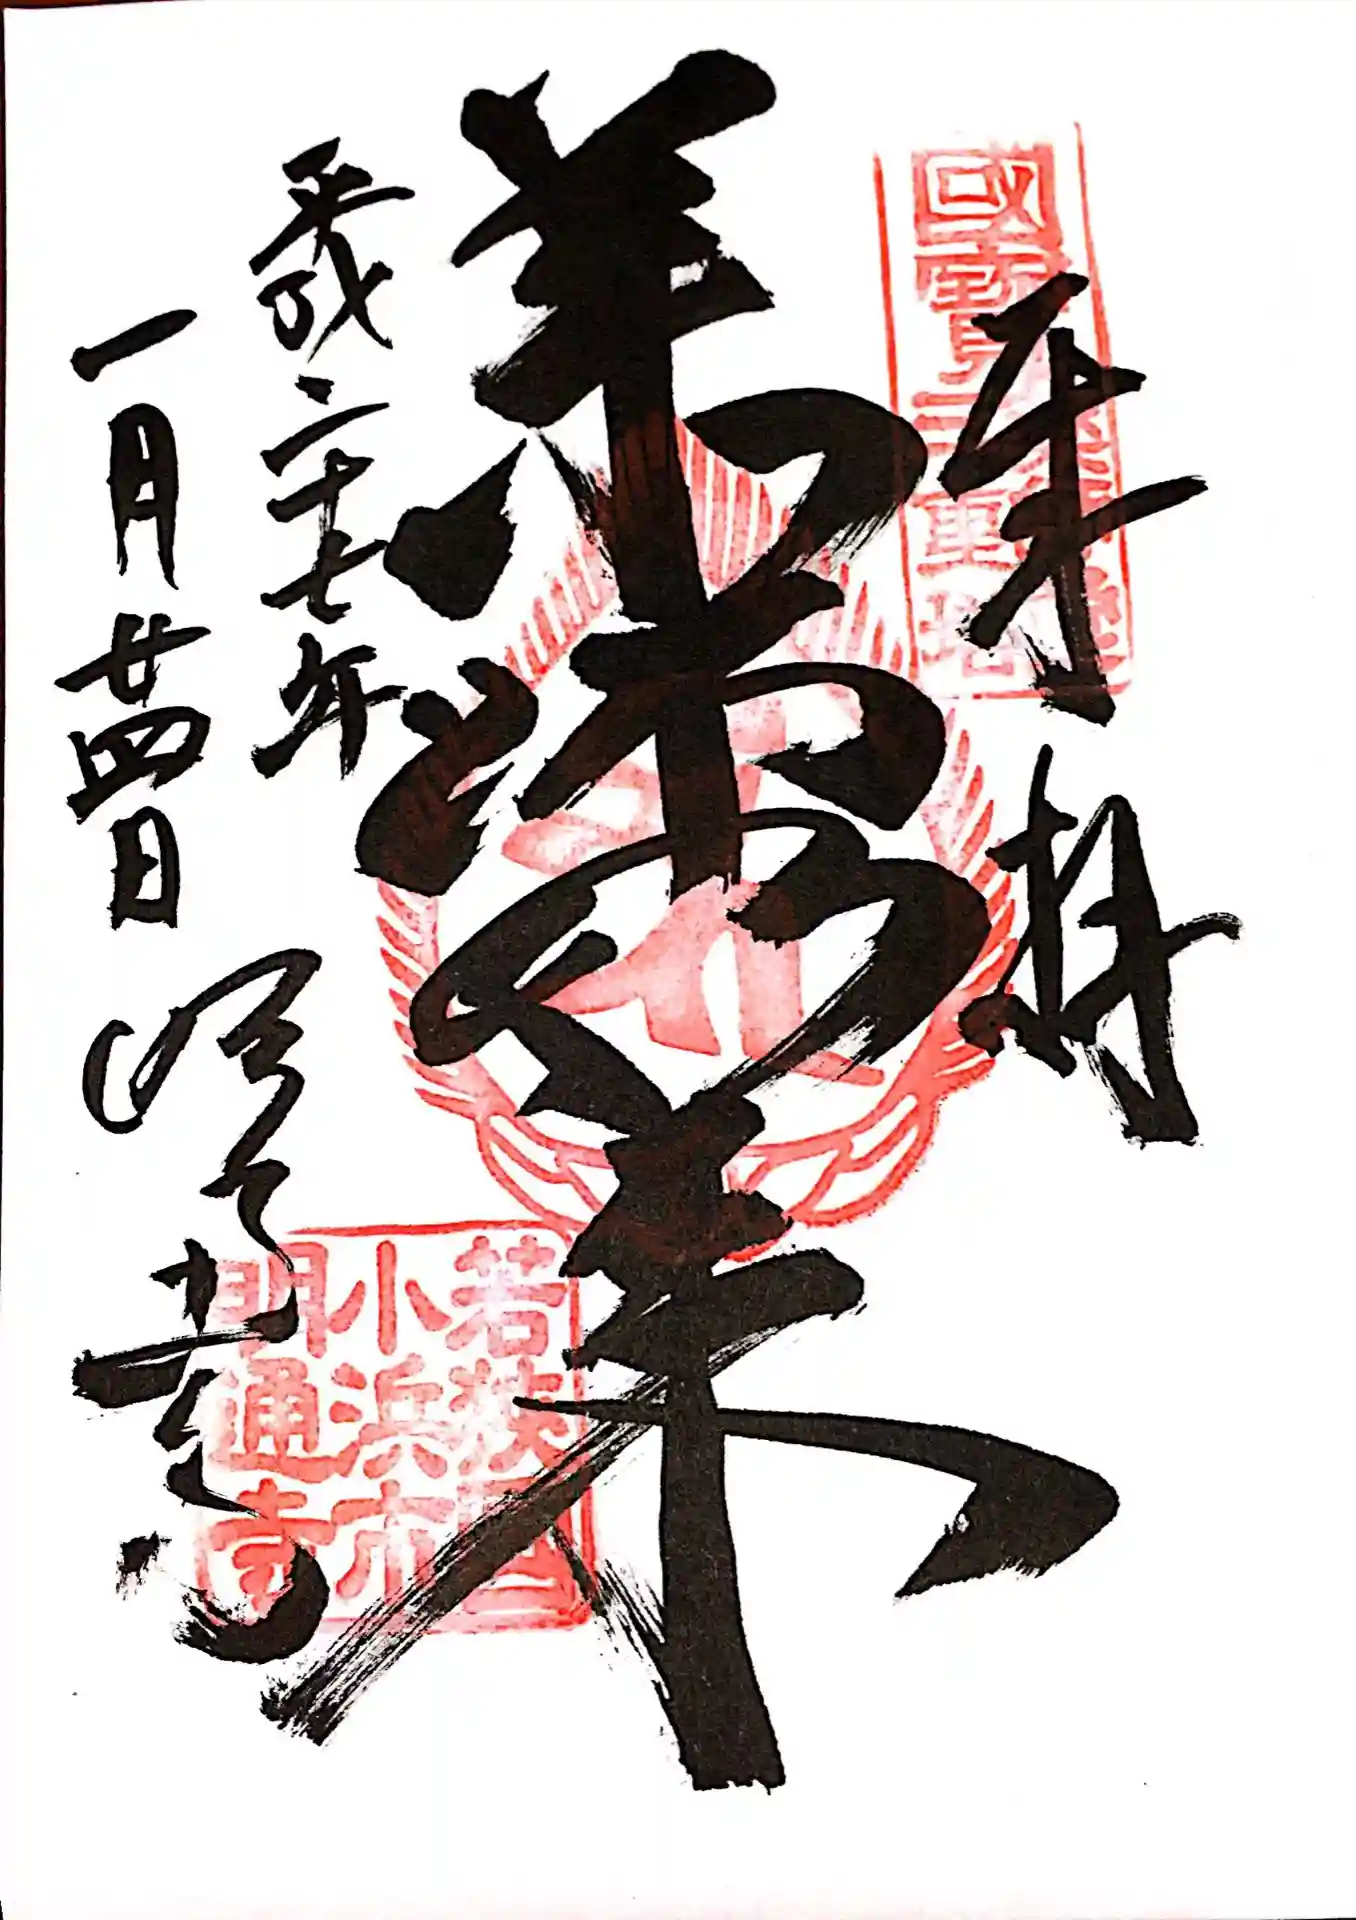 奉拝
國寳三重塔
薬師如来
平成二十七年
一月廿四日
明通寺
若狭国
小浜市
明通寺